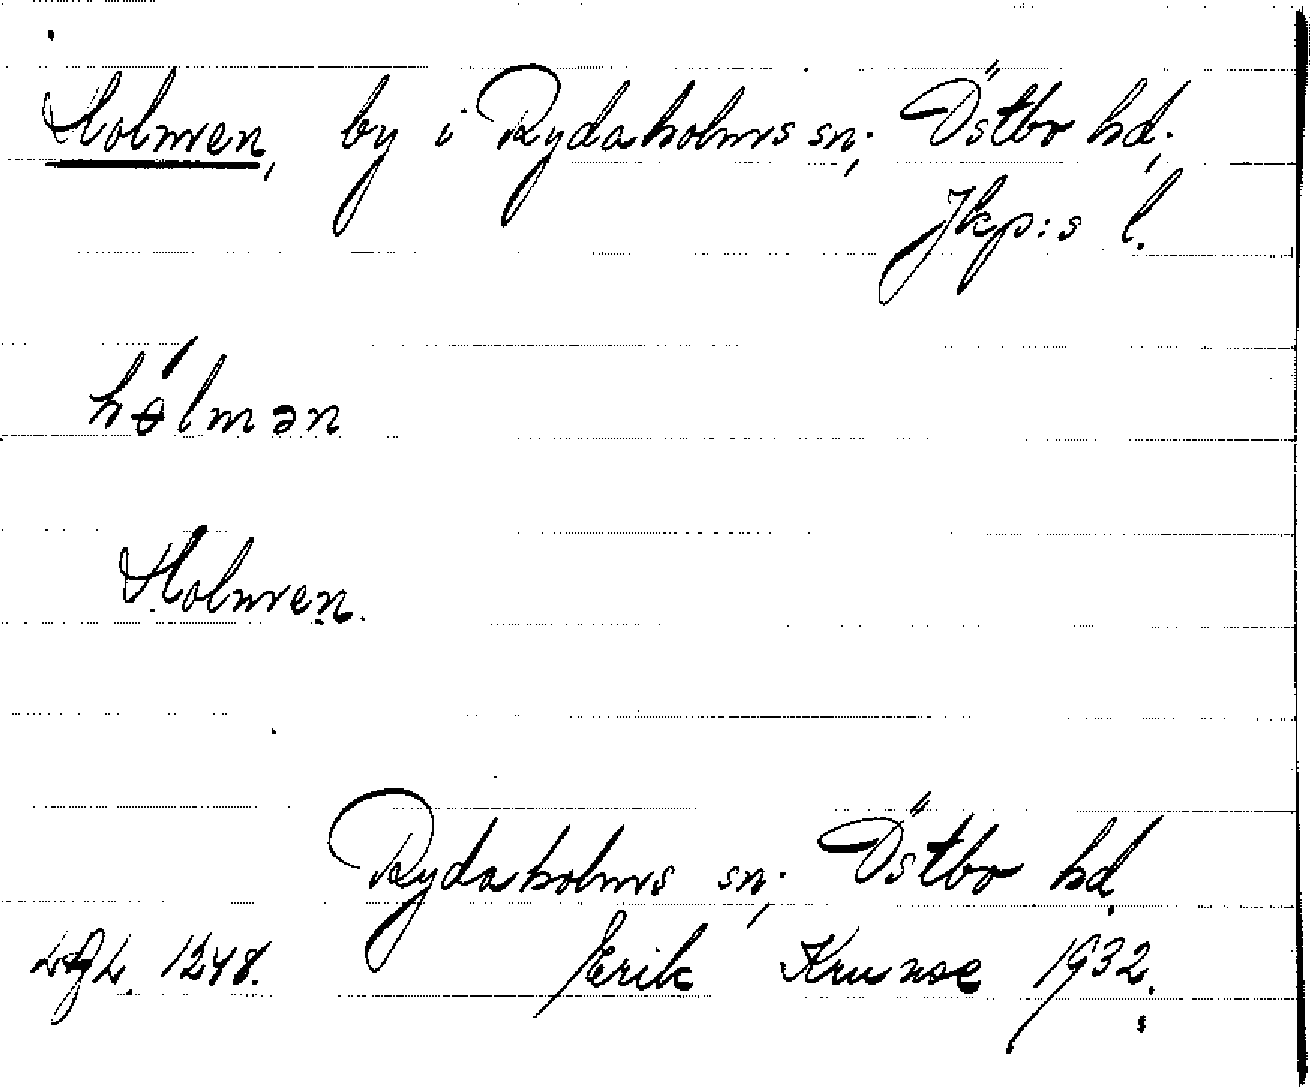 Holmen, by i Rydaholms sn; Östbo hd;
Jkp:s l.
hɵ́lmən
Holmen.
Rydaholms sn; Östbo hd,
1248. Erik Krunse 1932.